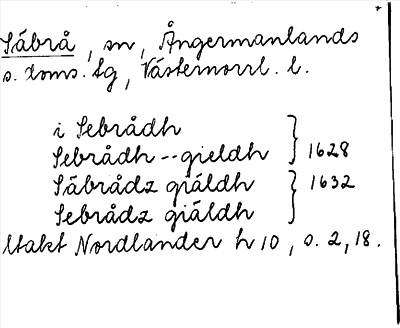 Säbrå, sn, Ångermanlands
s. doms. tg, Västernorrl. l.
i Sebrådh
Sebrådh--gieldh } 1628
Säbrådz giäldh } 1632
Sebrådz giäldh
Utakt Nordlander h 10, s. 2, 18.